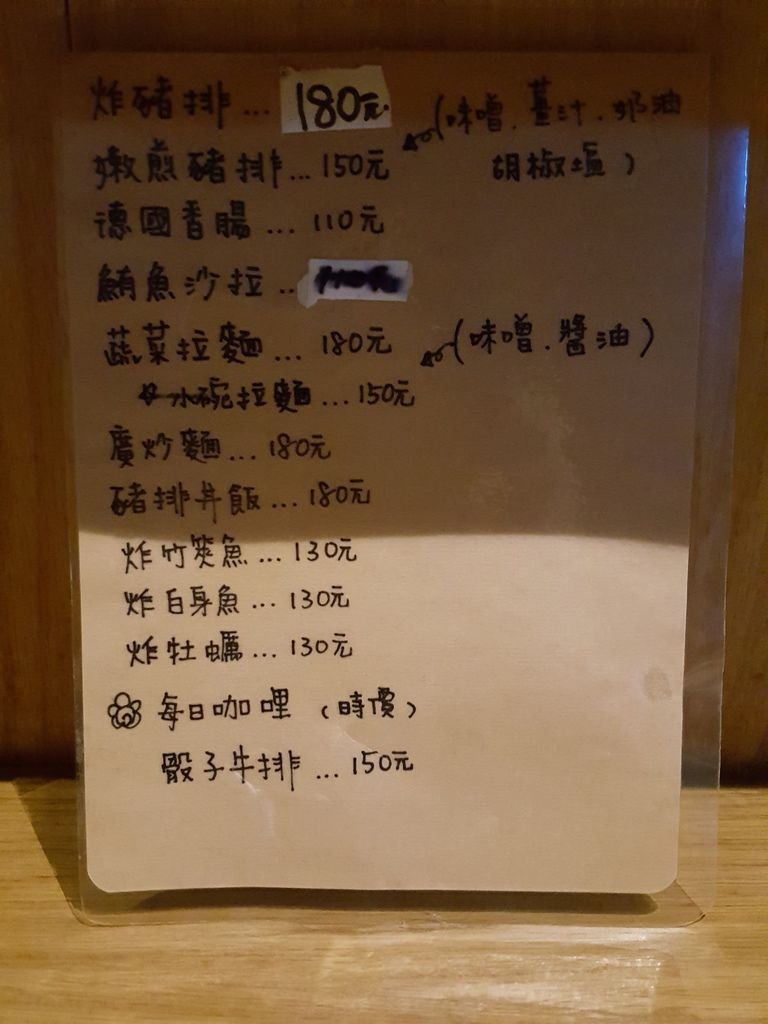 炸豬排... 180元
(味噌.薑汁.奶油
嫩煎豬排...150元
胡椒塩)
德國香腸...110元
鮪魚沙拉..
蔬菜拉麵...180元 (味噌.醬油)
小碗拉麵...150元
廣炒麵...180元
豬排丼飯...180元
炸竹筴魚...130元
炸白身魚...130元
炸牡蠣...130元
每日咖哩(時價)
骰子牛排...150元